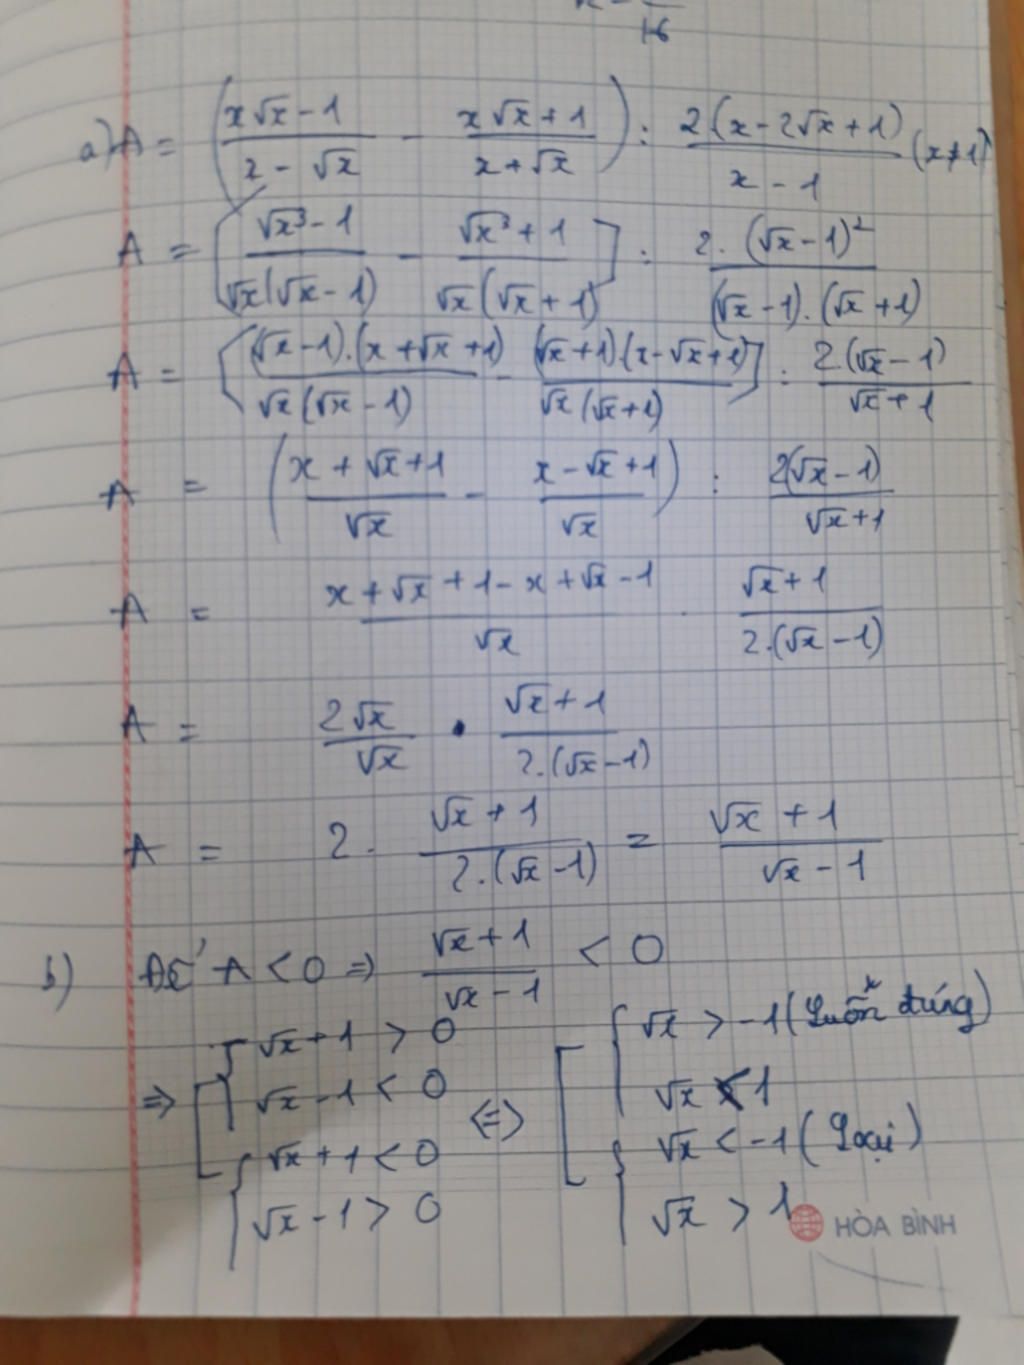 16
a) A = (x√x - 1 / x - √x - x√x + 1 / x + √x) : 2(x - 2√x + 1) / x - 1 (x ≠ 1)
A = [√x³ - 1 / √x(√x - 1) - √x³ + 1 / √x(√x + 1)] : 2.(√x - 1)² / (√x - 1).(√x + 1)
A = [(√x - 1).(x + √x + 1) / √x(√x - 1) - (√x + 1).(x - √x + 1) / √x(√x + 1)] : 2.(√x - 1) / √x + 1
A = (x + √x + 1 / √x - x - √x + 1 / √x) : 2(√x - 1) / √x + 1
A = x + √x + 1 - x + √x - 1 / √x . √x + 1 / 2.(√x - 1)
A = 2√x / √x . √x + 1 / 2.(√x - 1)
A = 2. √x + 1 / 2.(√x - 1) = √x + 1 / √x - 1
b) Để A < 0 => √x + 1 / √x - 1 < 0
=> [ { √x + 1 > 0 <=> [ { √x > -1 (Luôn đúng)
√x - 1 < 0 √x < 1
{ √x + 1 < 0 { √x < -1 (Loại)
√x - 1 > 0 √x > 1
HÒA BÌNH